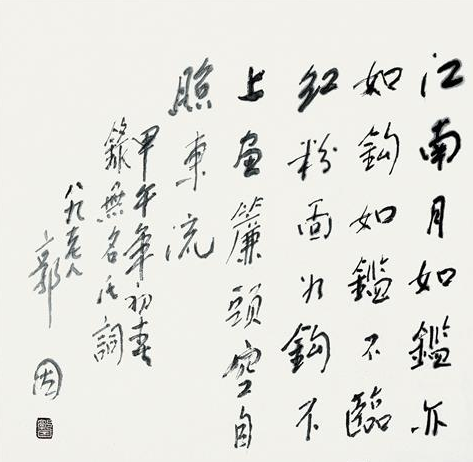 江南月如鑑亦
如鈎如鑑不臨
紅粉面如鈎不
上畫簾頭空自
照東流
甲午年初春
錄無名氏詞
八九老人
郭因